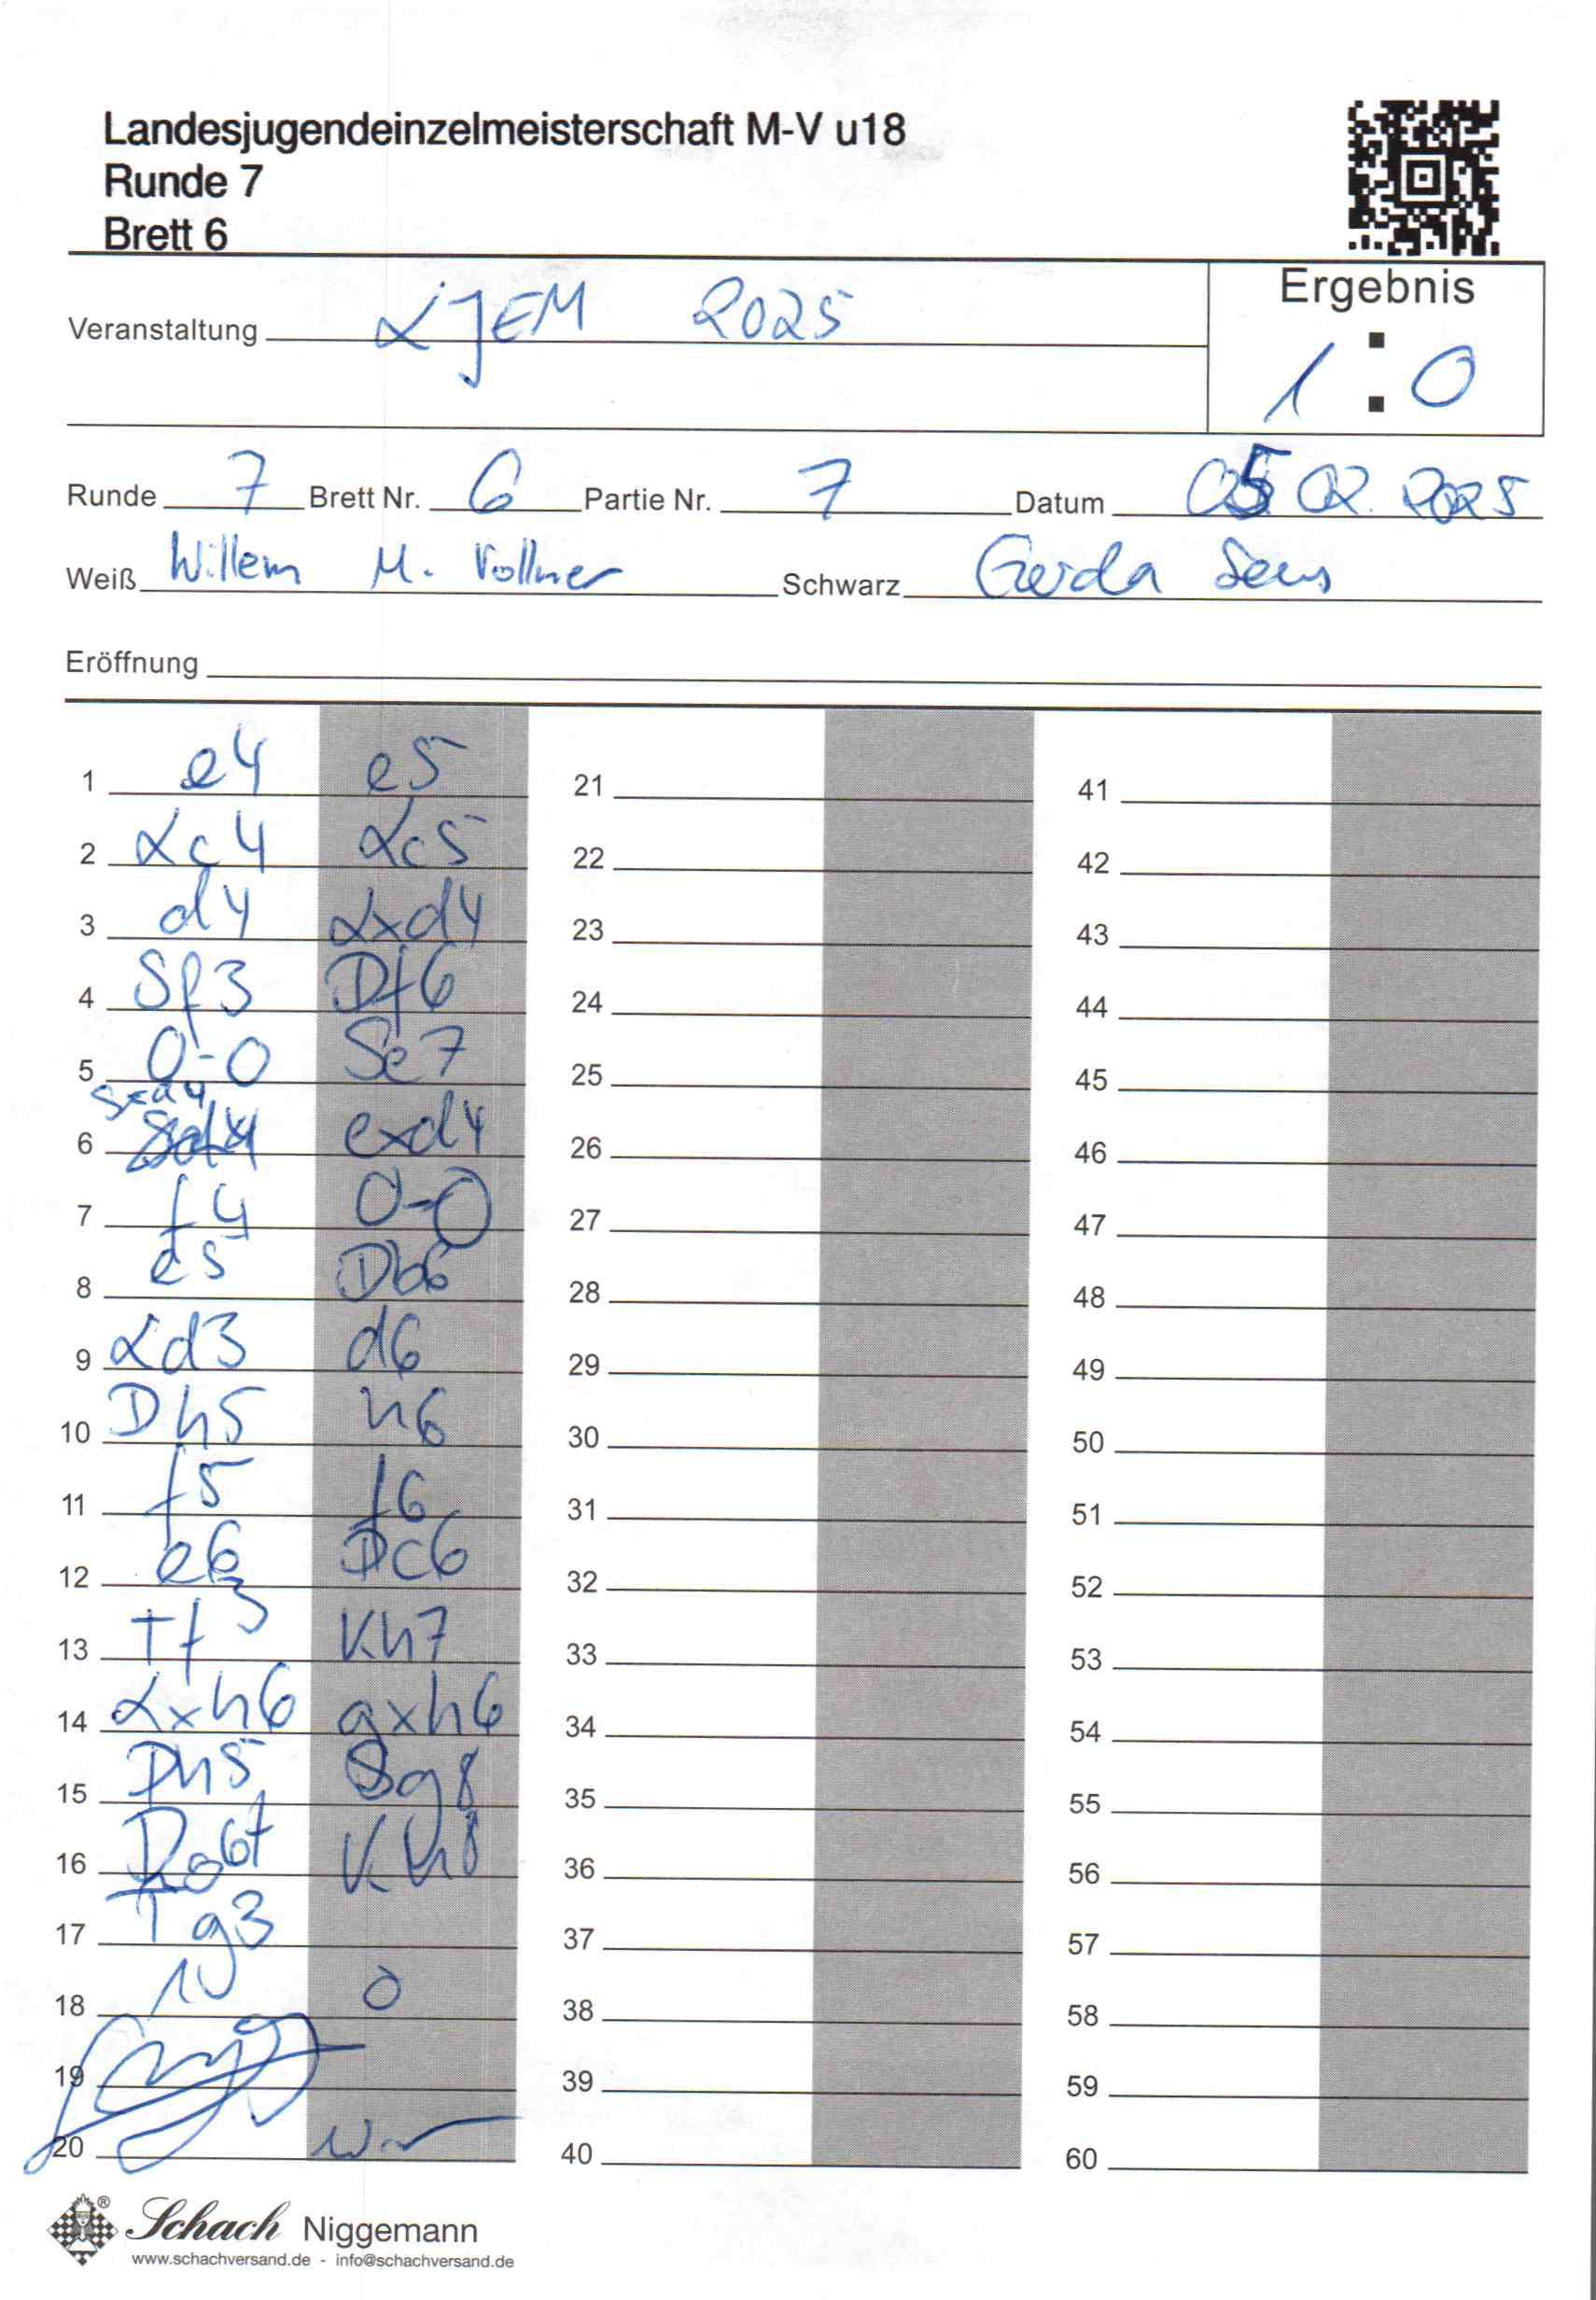 Landesjugendeinzelmeisterschaft M-V u18
Runde 7
Brett 6
Ergebnis
Veranstaltung LJEM 2025
1 : 0
Runde 7 Brett Nr. 6 Partie Nr. 7 Datum 05 02. 2025
Weiß Willem M. Vollmer Schwarz Gerda Sens
Eröffnung
1 e4 e5 21 41
2 Lc4 Lc5 22 42
3 d4 Lxd4 23 43
4 Sf3 Df6 24 44
5 0-0 Se7 25 45
Sxd4
6 exd4 26 46
7 f4 0-0 27 47
8 e5 Db6 28 48
9 Ld3 d6 29 49
10 Dh5 h6 30 50
11 f5 f6 31 51
12 e6 Dc6 32 52
13 Tf3 Kh7 33 53
14 Lxh6 gxh6 34 54
15 Dh5 Sg8 35 55
16 Dg6+ Kh8 36 56
17 Tg3 37 57
18 1 0 38 58
19 39 59
20 40 60
Schach Niggemann
www.schachversand.de - info@schachversand.de